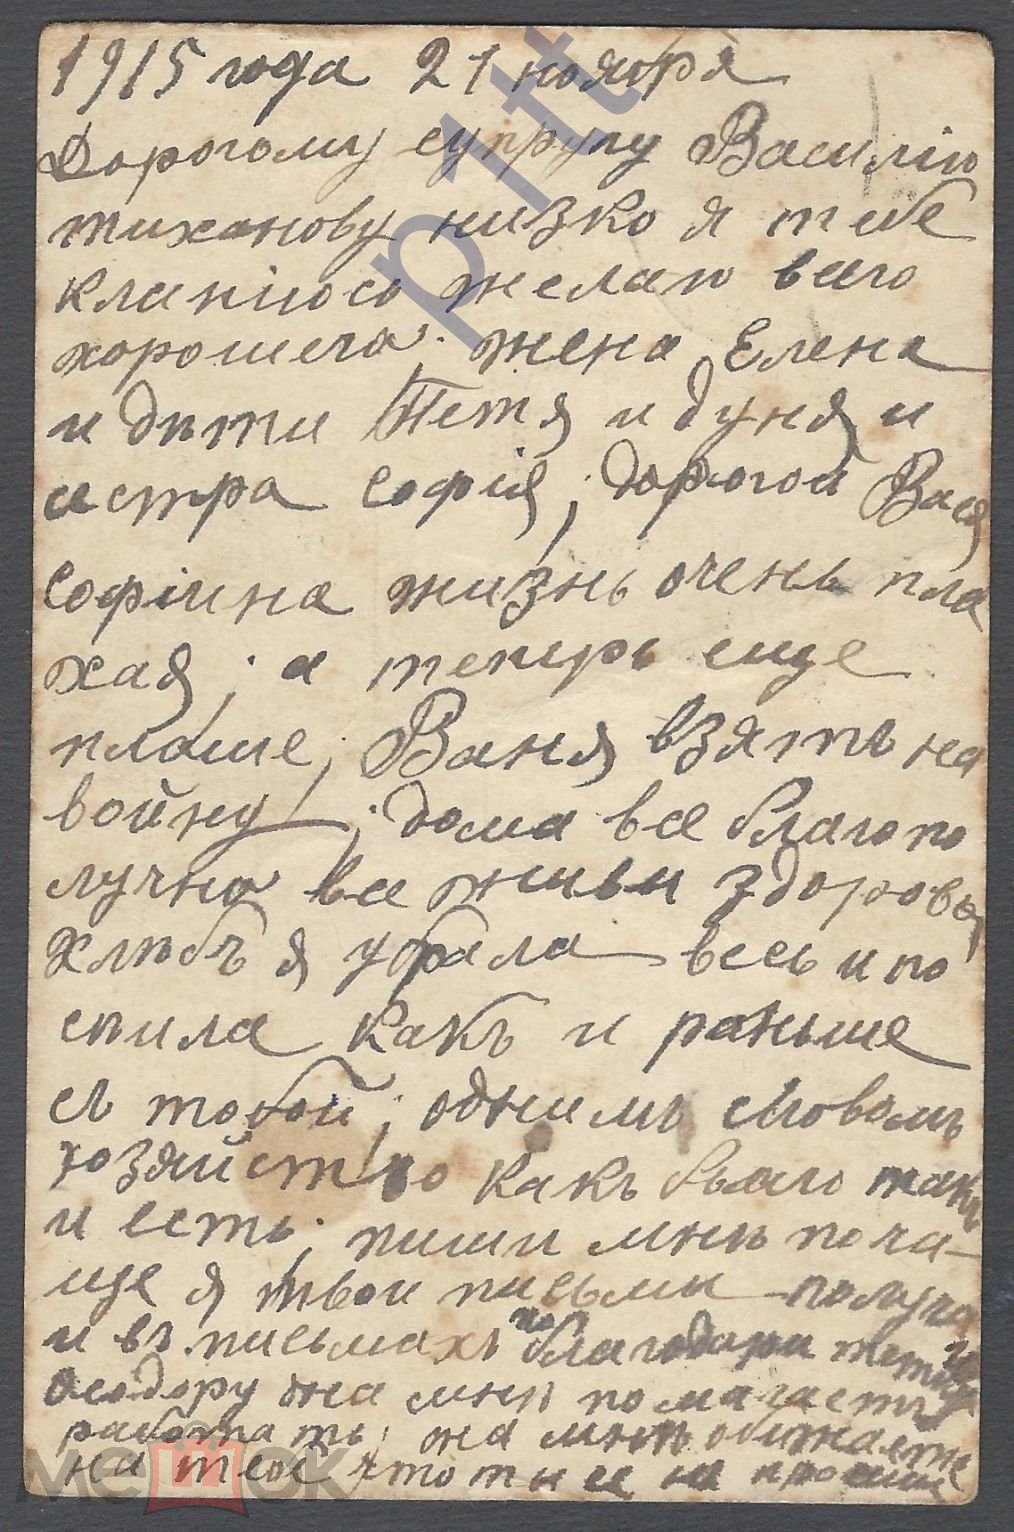 1915 года 21 ноября
Дорогому супругу Василию
тиханову низко я тебе
кланіюсь желаю всего
хорошега. жена Елена
и дѣти Петя и дуня и
сестра Софія; дорогой Вася
Софіина жизнь очень пла
хая; а теперь еще
плоше; Ваня взятъ на
войну; дома все благопо
лучно все живы здоровы,
Хлѣбъ я убрала весь и по
сѣила какъ и раньше
съ тобой; однимъ словомъ
хозяйство какъ было такъ
и есть; пиши мнѣ поча-
ще я твои письмы получа
и въ письмахъ поблагодари
она мнѣ помагаетъ
работать; она мнѣ обижается
на тебе что ты ее не
p1tt
МЕШОК